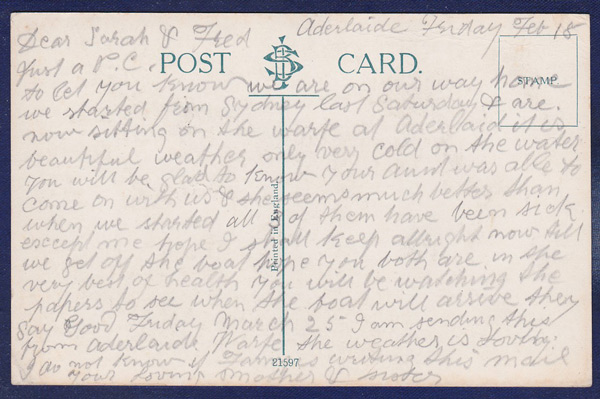 Aderlaide Friday Feb 18
Dear Sarah & Fred
POST CARD.
STAMP
Just a P.C.
to let you know we are on our way home
we started from Sydney last Saturday & are
now sitting on the warfe at Aderlaid it is
beautiful weather only very cold on the water
you will be glad to know your aunt was able to
come on with us & she seems much better than
when we started all of them have been sick
except me hope I shall keep allright now till
we get off the boat hope you both are in the
very best of health you will be watching the
papers to see when the boat will arrive they
say Good Friday March 25 I am sending this
from aderlaide Warfe the weather is
I do not know if is writing this mail
Your loving mother & sister
Printed in England.
21597